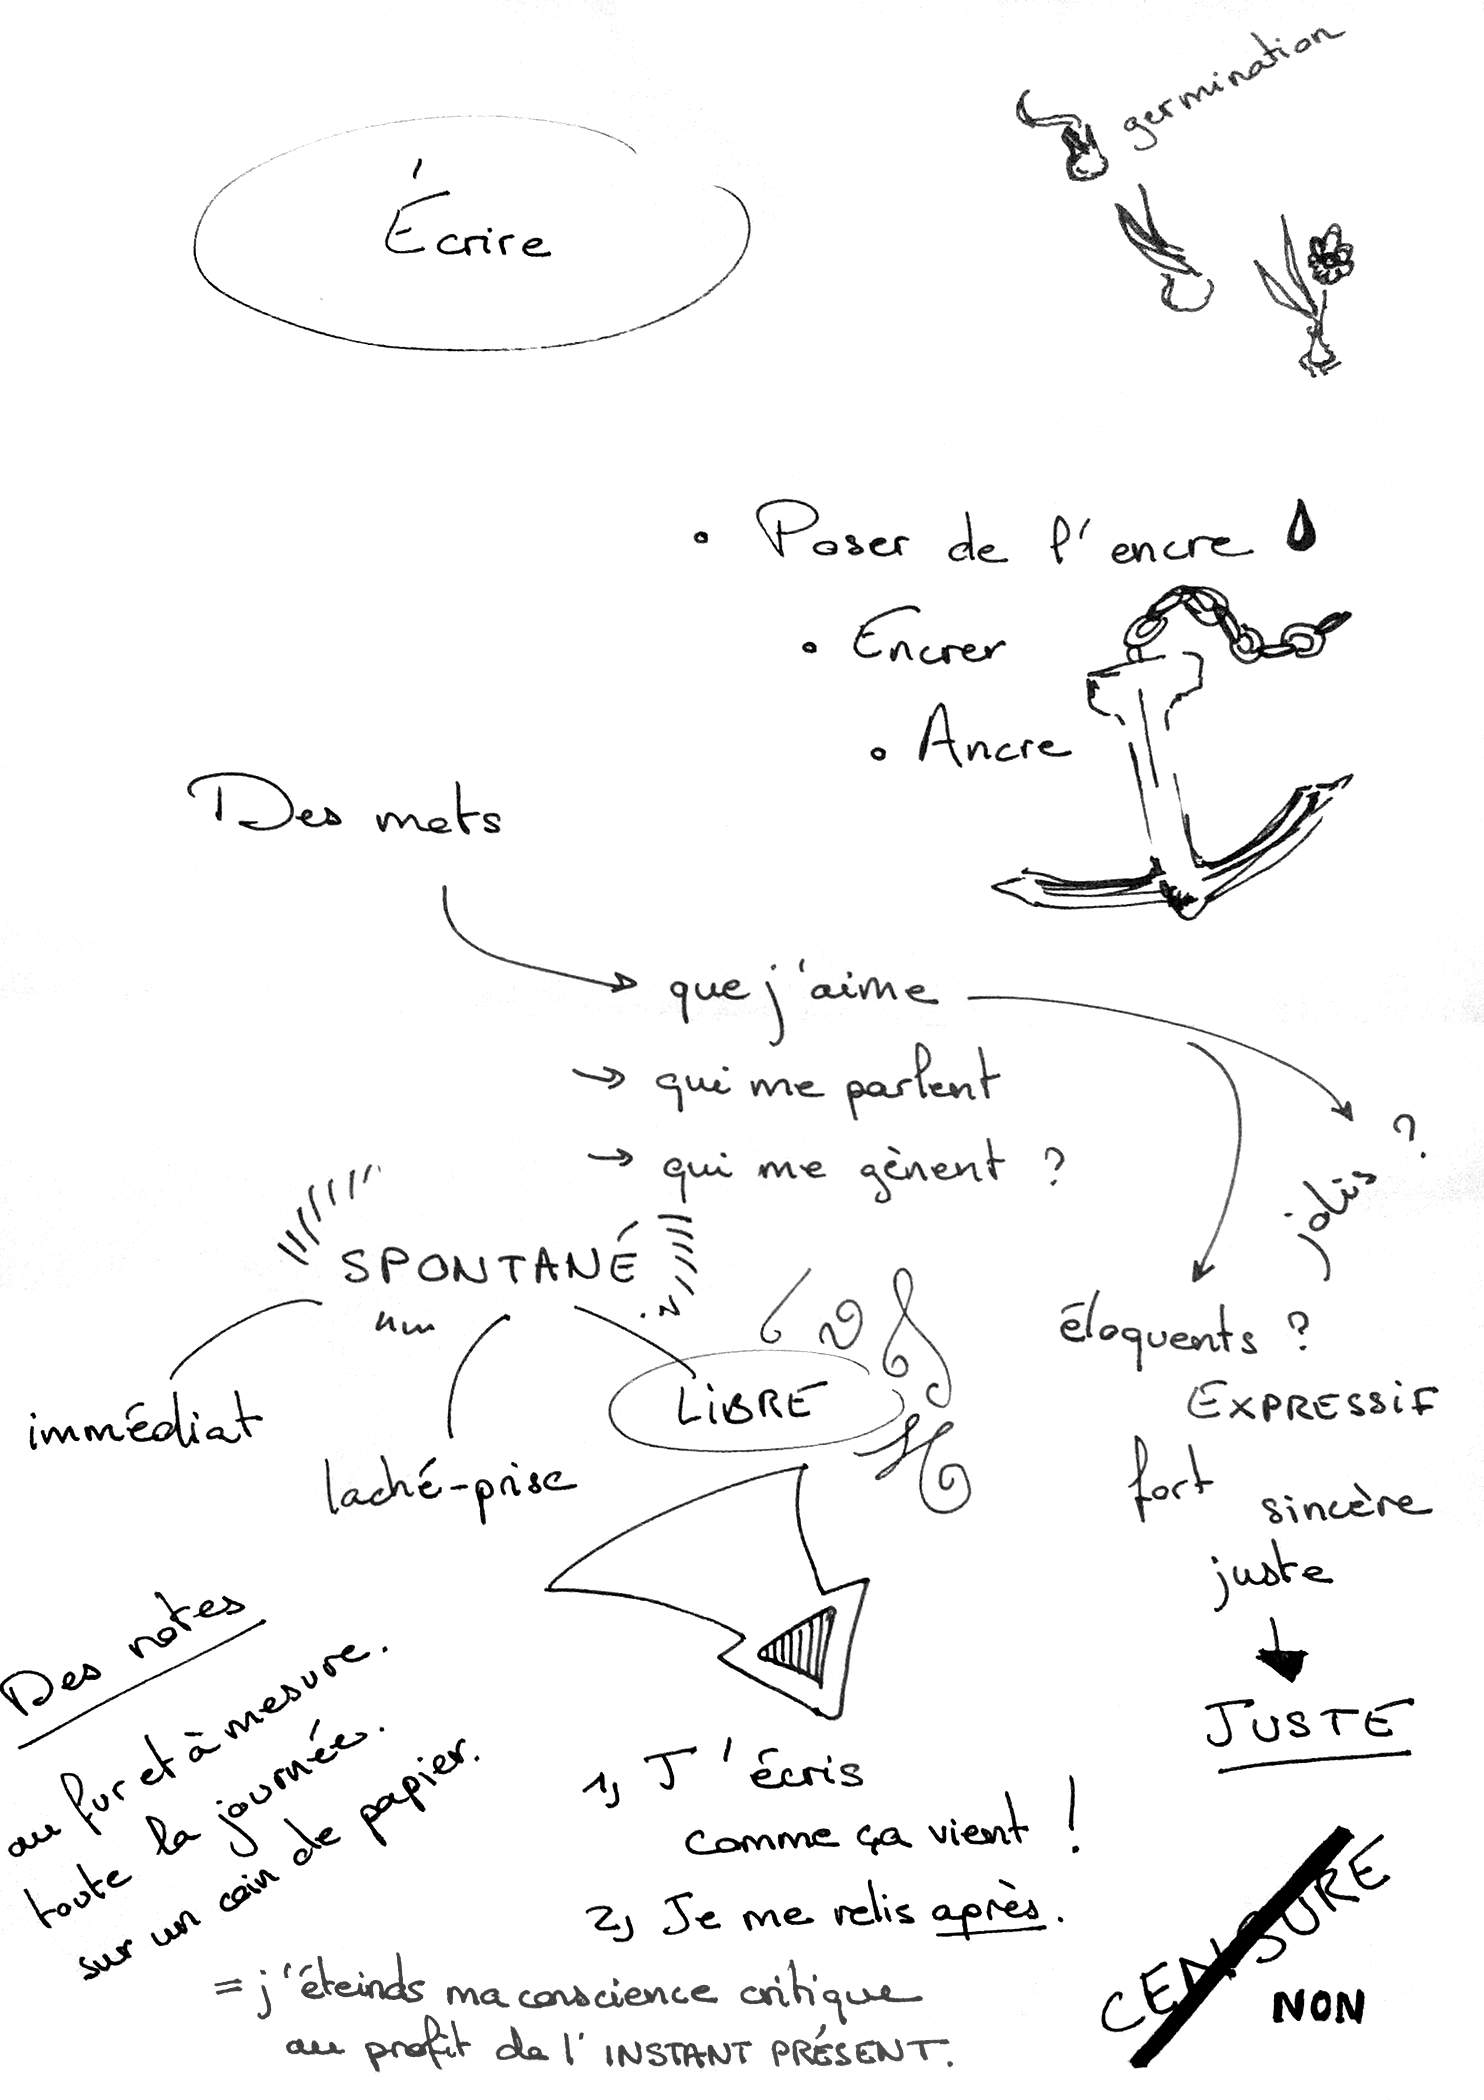 germination
Écrire
• Poser de l'encre
• Encrer
• Ancre
Des mots
→ que j'aime
→ qui me parlent
→ qui me gènent ?
jolis ?
SPONTANÉ
éloquents ?
EXPRESSIF
immédiat
LIBRE
laché-prise
fort
sincère
juste
JUSTE
Des notes
au fur et à mesure.
toute la journée.
sur un coin de papier.
1) J'écris
comme ça vient !
2) Je me relis après.
= j'éteinds ma conscience critique
au profit de l'INSTANT PRÉSENT.
CENSURE
NON